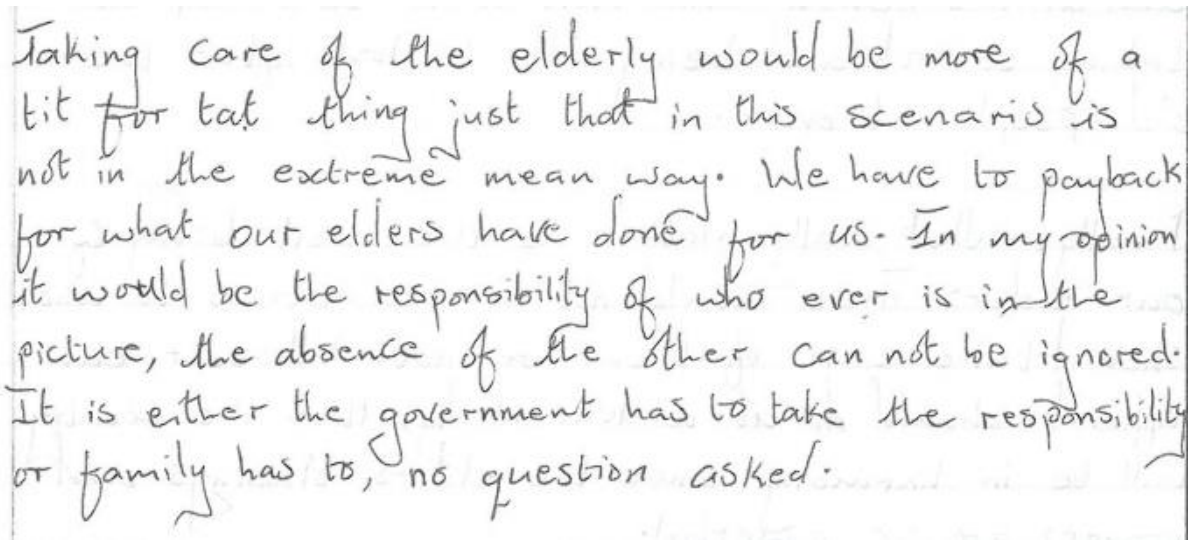 Taking care of the elderly would be more of a
tit for tat thing just that in this scenario is
not in the extreme mean way. We have to payback
for what our elders have done for us. In my opinion
it would be the responsibility of who ever is in the
picture, the absence of the other can not be ignored.
It is either the government has to take the responsibility
or family has to, no question asked.